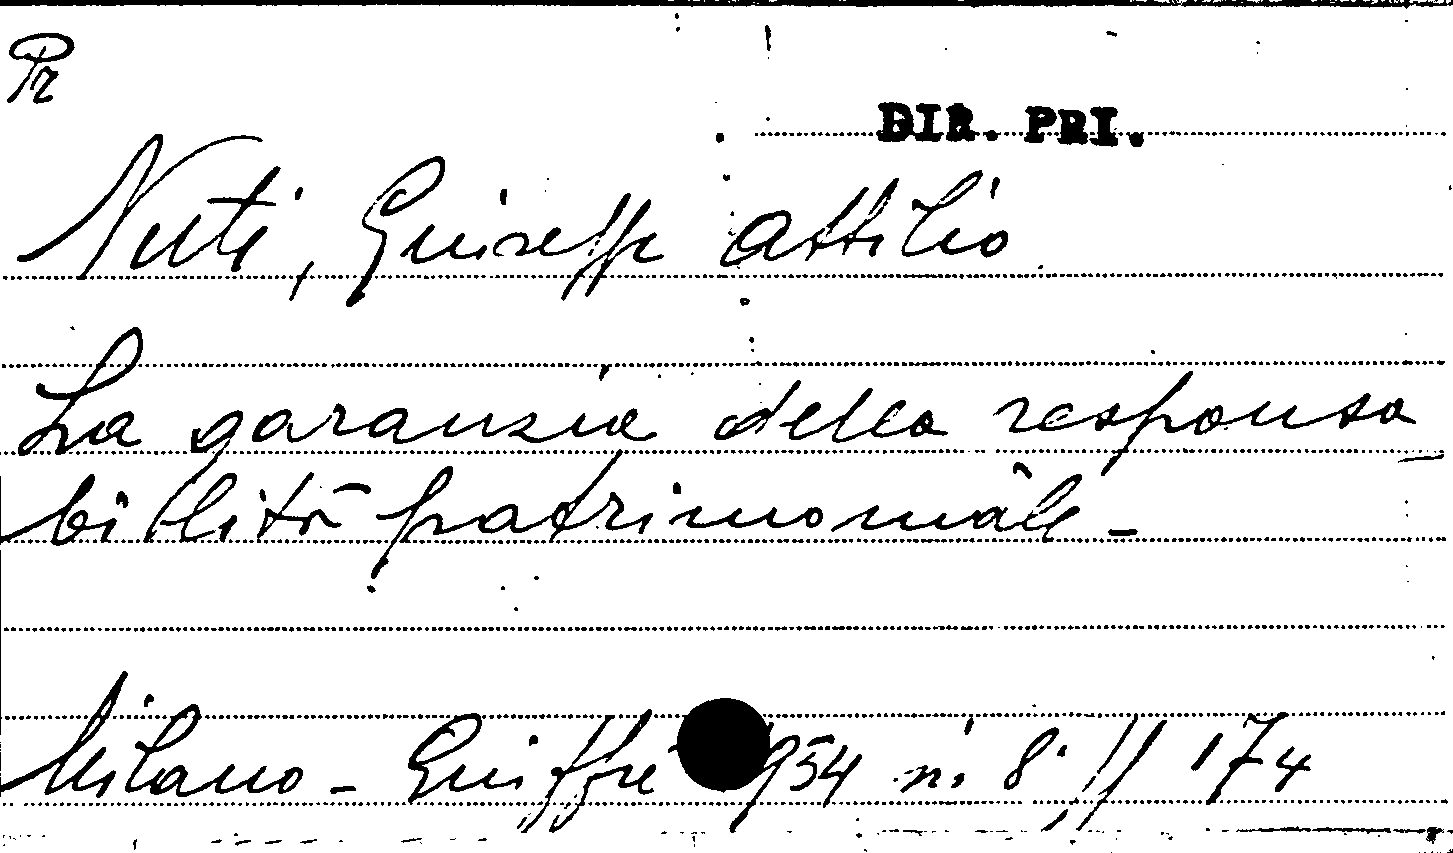 Pr
DIR. PRI.
Nuti, Giuseppe Attilio
La garanzia della responsa
bilità patrimoniale -
Milano - Giuffrè 1954 in 8° pp 174